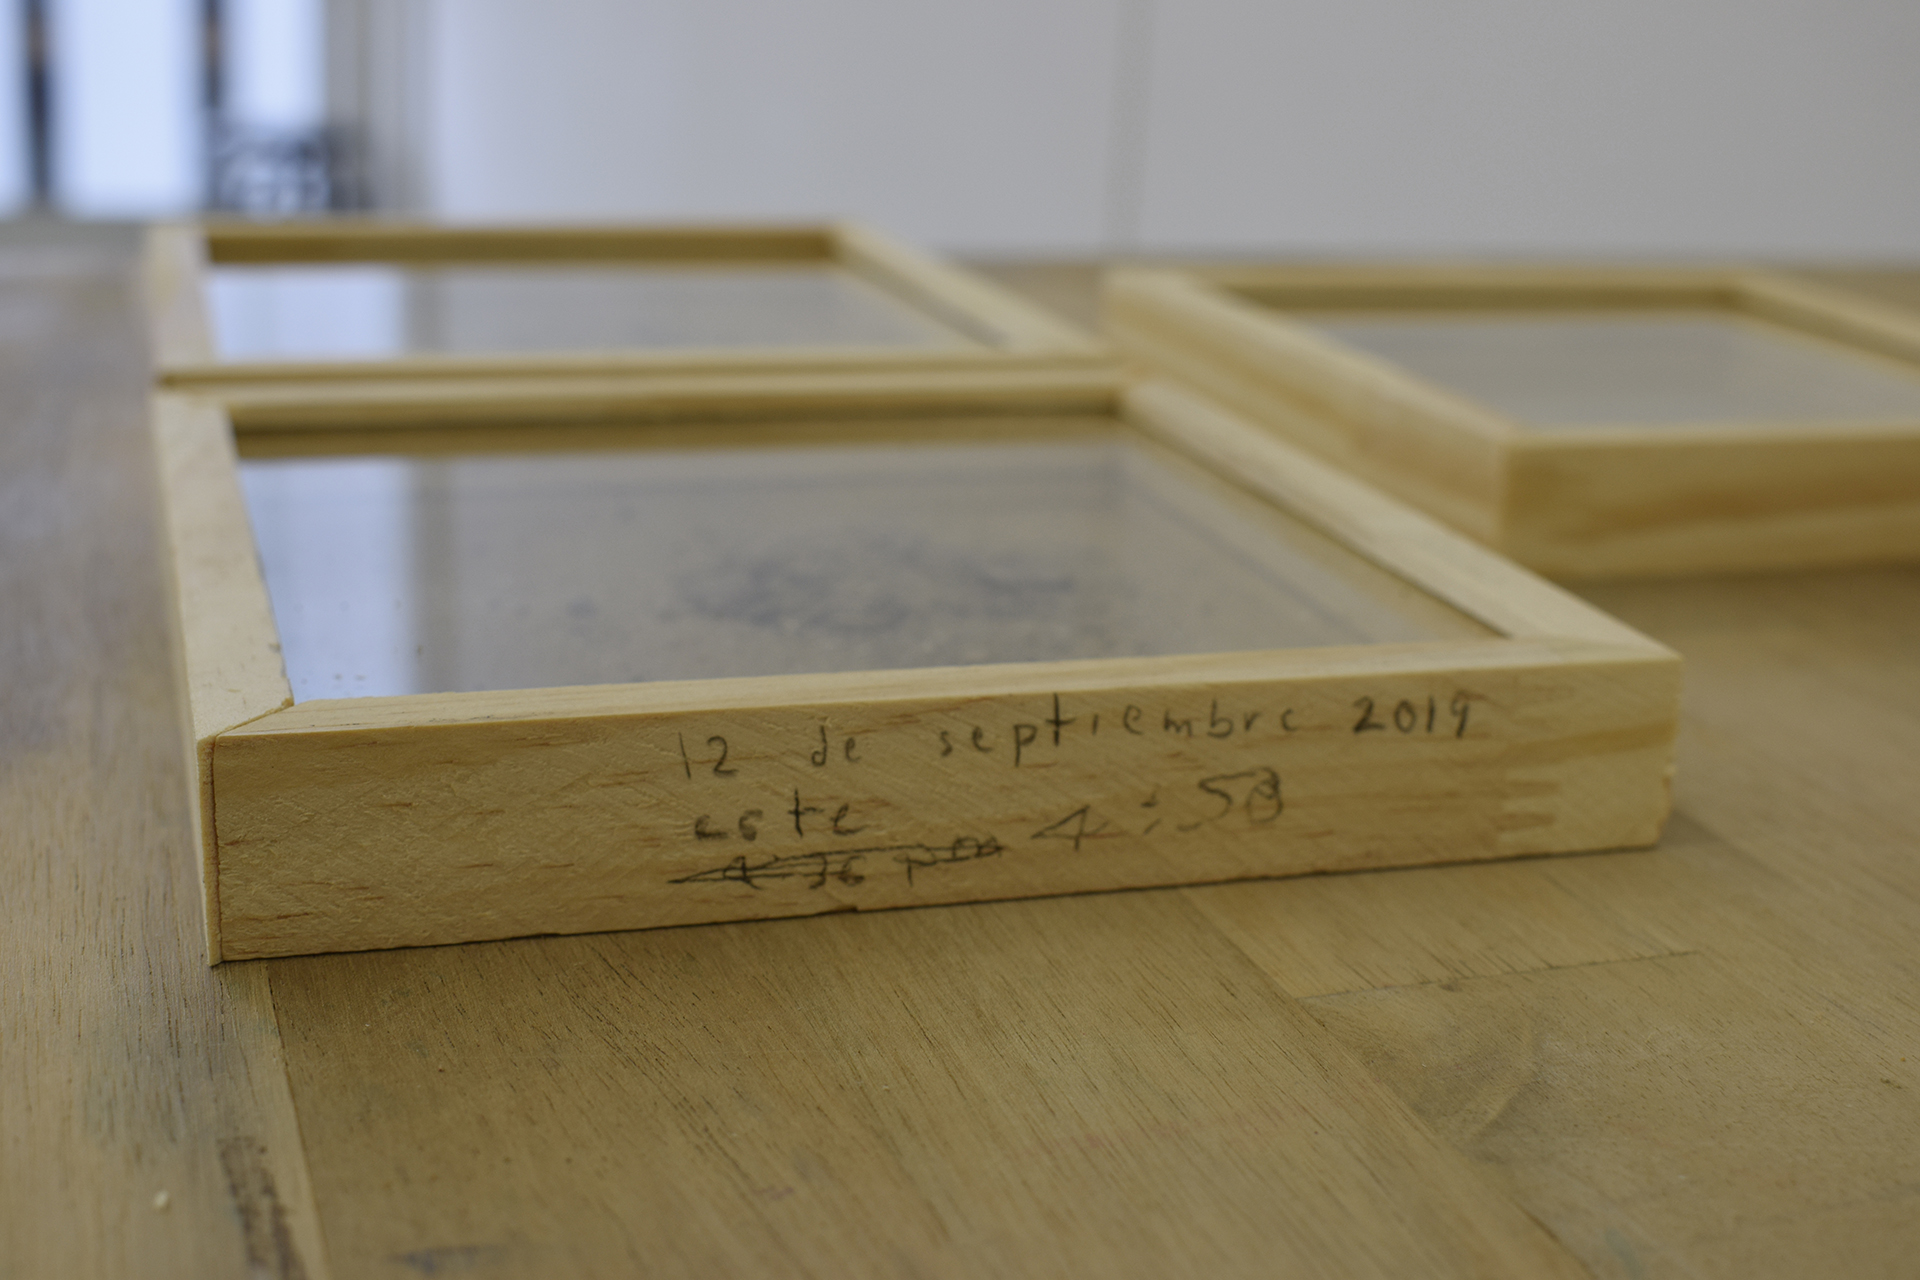 12 de septiembre 2019
este
4:36 pm 4:58